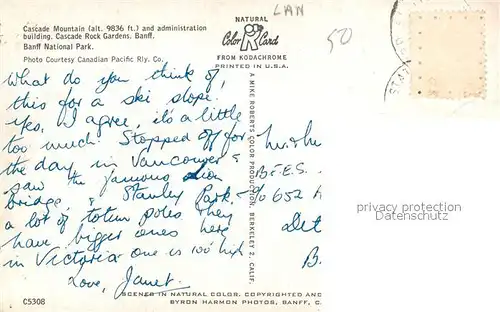 LAW
50
Cascade Mountain (alt. 9836 ft.) and administration
building, Cascade Rock Gardens, Banff,
Banff National Park.
Photo Courtesy Canadian Pacific Rly. Co.
NATURAL
Color Card
FROM KODACHROME
PRINTED IN U.S.A.
What do you think of
this for a ski slope.
Yes, I agree, it's a little
too much! Stopped off for
the day in Vancouver &
saw the famous Lion
bridge, & Stanley Park.
a lot of totem poles they
have bigger ones here
in Victoria one is 100' high
Love, Janet.
A MIKE ROBERTS COLOR PRODUCTION, BERKELEY 2, CALIF.
B.F.E.S.
℅ 652
Det
B.
privacy protection
Datenschutz
C5308
SCENER IN NATURAL COLOR, COPYRIGHTED AND
BYRON HARMON PHOTOS, BANFF, C